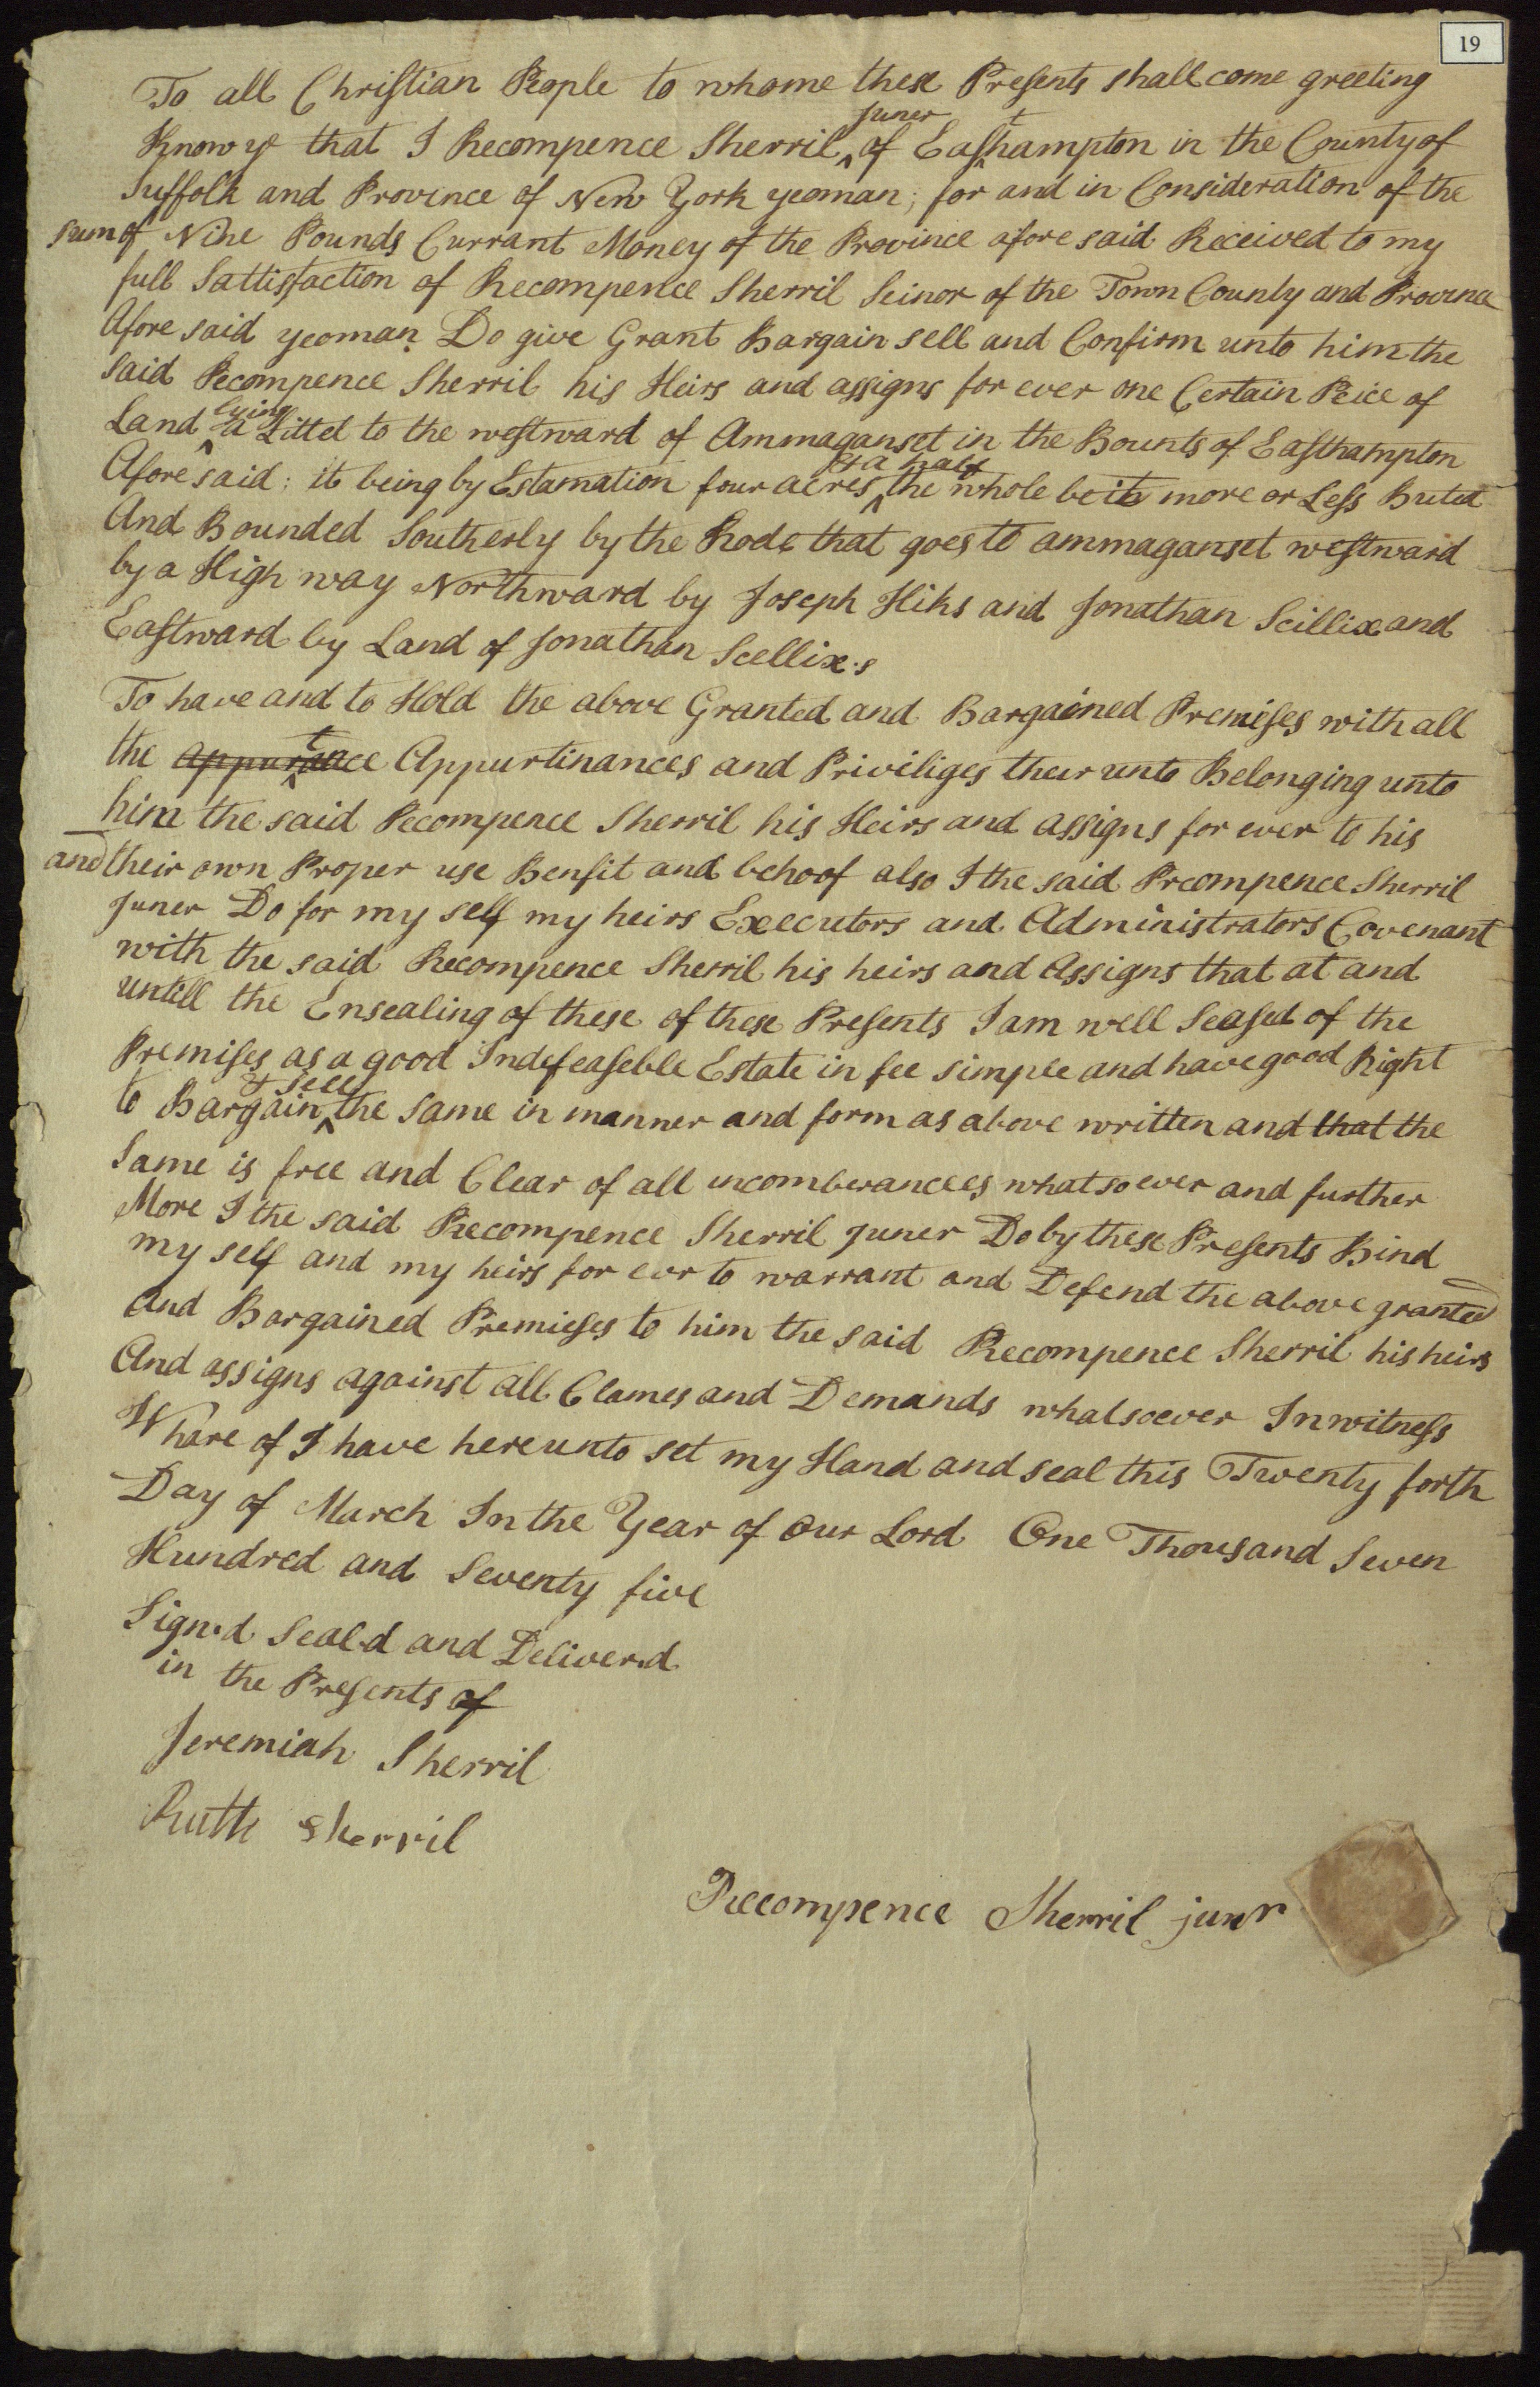 19
To all Christian People to whome these Presents shall come greeting
Know ye that I Recompence Sherril ^juner of Eas^thampton in the County of
Suffolk and Province of New York yeoman; for and in Consideration of the
sum of Nine Pounds Currant Money of the Province afore said Received to my
full Sattisfaction of Recompence Sherril Seinor of the Town County and Province
Afore said yeoman Do give Grant Bargain sell and Confirm unto him the
Said Recompence Sherril his Heirs and assigns for ever one Certain Peice of
Land ^lying a Littel to the westward of Ammaganset in the Bounts of Easthampton
Afore said: it being by Estamation four acres ^& a half the whole be it more or Less Buted
And Bounded Southerly by the Rode that goes to ammaganset westward
by a High way Northward by Joseph Hiks and Jonathan Scillix and
Eastward by Land of Jonathan Scellix.s
To have and to Hold the above Granted and Bargained Premises with all
the Appurtinances and Priviliges their unto Belonging unto
him the said Recompence Sherril his Heirs and assigns for ever to his
and their own Proper use Benfit and behoof also I the said Recompence Sherril
Juner Do for my self my heirs Executors and Administrators Covenant
with the said Recompence Sherril his heirs and Assigns that at and
untill the Ensealing of these of these Presents I am well Seased of the
Premises as a good Indefeaseble Estate in fee simple and have good Right
to Bargain ^& sell the same in manner and form as above written and that the
Same is free and Clear of all incomberancees whatsoever and further
More I the said Recompence Sherril juner Do by these Presents Bind
my self and my heirs for evr to warrant and Defend the above granted
And Bargained Premieses to him the said Recompence Sherril his heirs
And assigns against all Clames and Demands whatsoever In witness
Whare of I have hereunto set my Hand and seal this Twenty forth
Day of March In the Year of Our Lord One Thousand Seven
Hundred and Seventy five
Sign.d Seal.d and Deliver.d
in the Presents of
Jeremiah Sherril
Ruth Sherril
Recompence Sherril junr